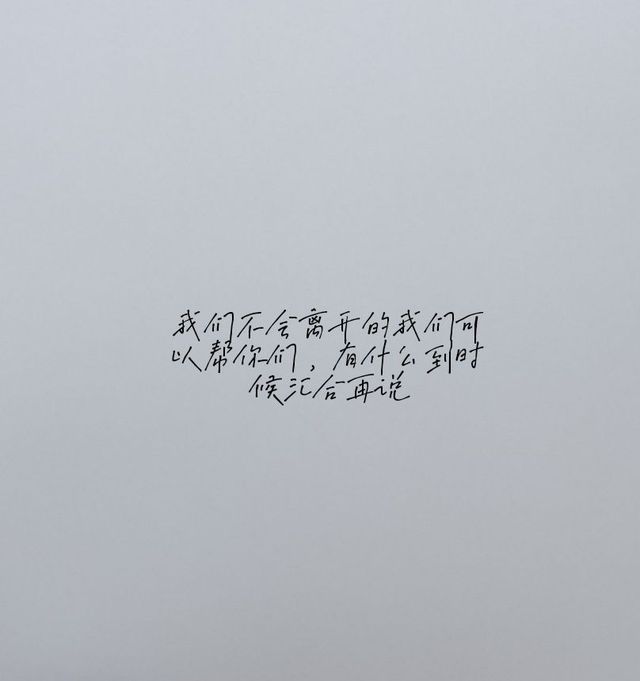 我们不会离开的我们可
以帮你们，有什么到时
候汇合再说